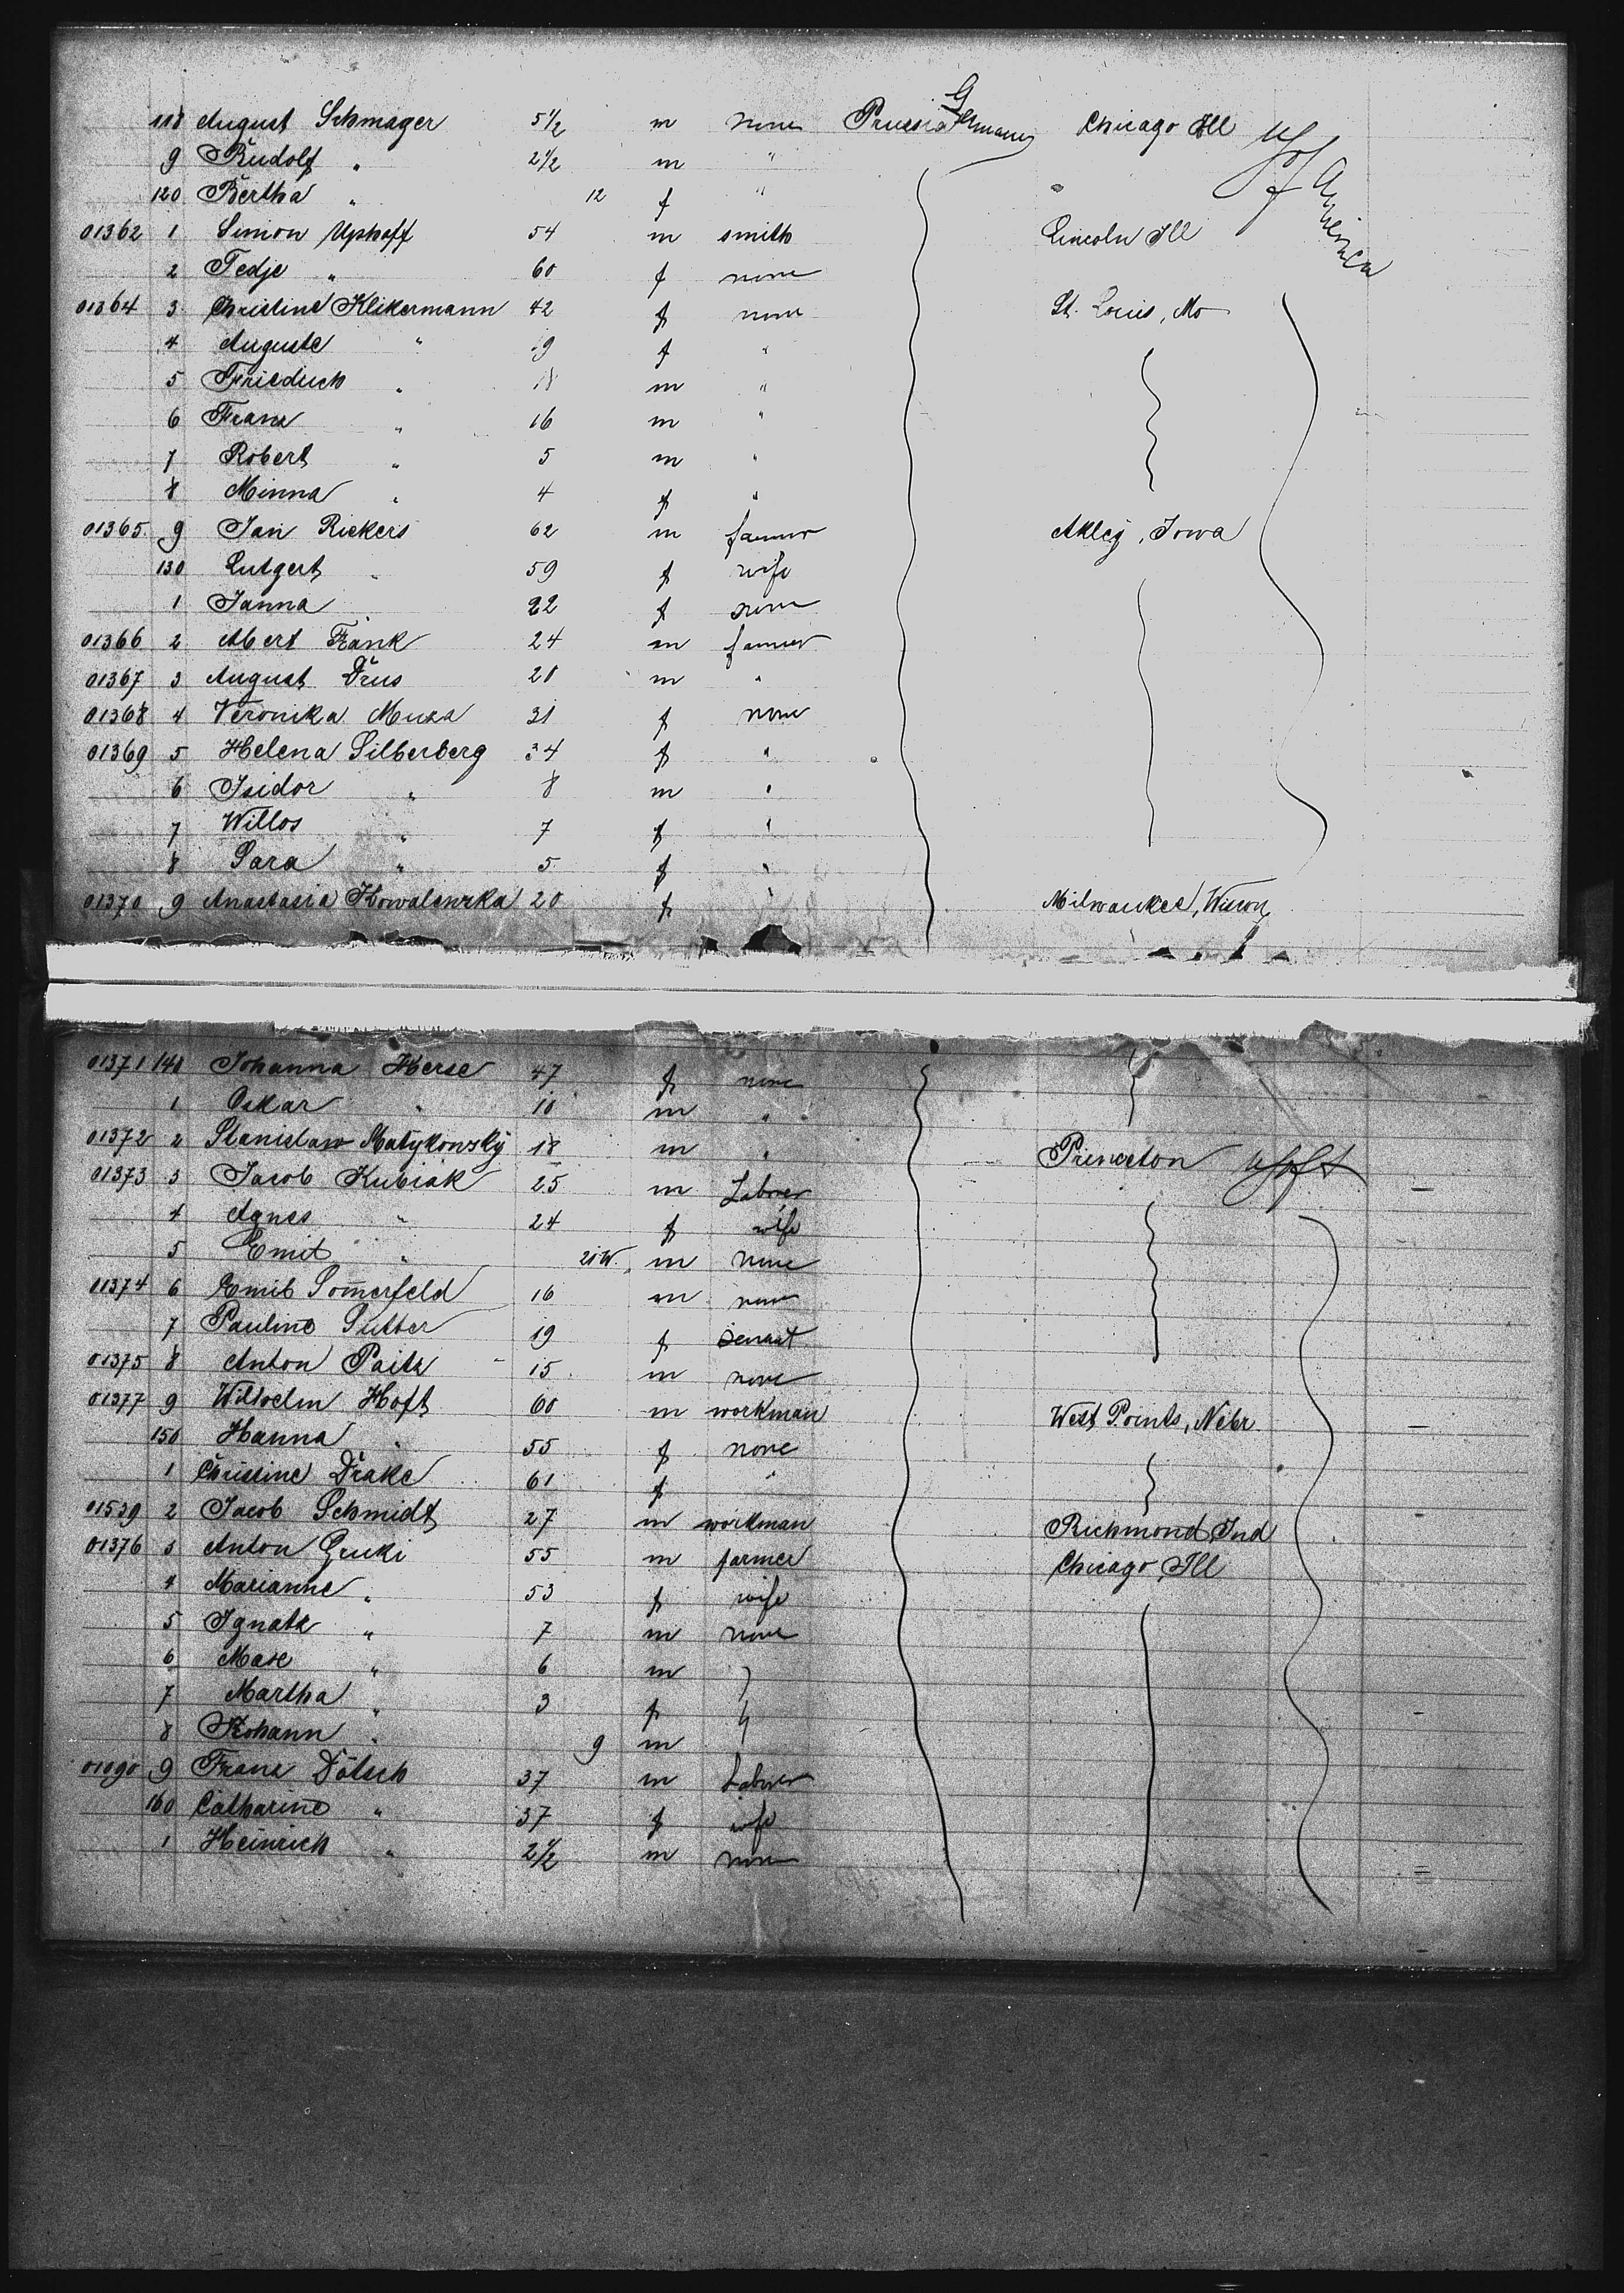 118 August Schmager 5½ m none Prussia Germany Chicago Ill US of America
9 Rudolf " 2½ m "
120 Bertha " 12 f "
01362 1 Simon Uphoff 54 m smith Lincoln Ill
2 Tedje " 60 f none
01364 3 Christine Klikermann 42 f none St. Louis, Mo
4 Auguste " 9 f "
5 Friedrich " 18 m "
6 Franz " 16 m "
7 Robert " 5 m "
8 Minna " 4 f "
01365 9 Jan Riekers 62 m farmer Akley, Iowa
130 Lutgert " 59 f wife
1 Janna " 22 f none
01366 2 Abert Frank 24 m farmer
01367 3 August Drus 28 m "
01368 4 Veronika Muza 31 f none
01369 5 Helena Silberberg 34 f "
6 Isidor " 8 m "
7 Willos " 7 f "
8 Sara " 5 f "
01370 9 Anastasia Kowalewska 20 f " Milwaukee,
01371 140 Johanna Herse 47 f none
1 Oskar " 10 m "
01372 2 Stanislaw Matykowsky 18 m " Princeton
01373 3 Jacob Kubiak 25 m Laborer
4 Agnes " 24 f wife
5 Emit " m none
01374 6 Emil Som̅erfeld 16 m none
7 Pauline Sutter 19 f servant
01375 8 Anton Paitz 15 m none
01377 9 Wilhelm Hoft 60 m workman West Points, Nebr.
150 Hanna " 55 f none
1 Christine Drake 61 f "
01539 2 Jacob Schmidt 27 m workman Richmond Ind
01376 3 Anton Gruki 55 m farmer Chicago, Ill
4 Marianne " 53 f wife
5 Ignatz " 7 m none
6 Max " 6 m
7 Martha " 3 f
8 Johann " 9 m
01090 9 Franz Dötsch 37 m Laborer
160 Catharine " 37 f wife
1 Heinrich " 2½ m none